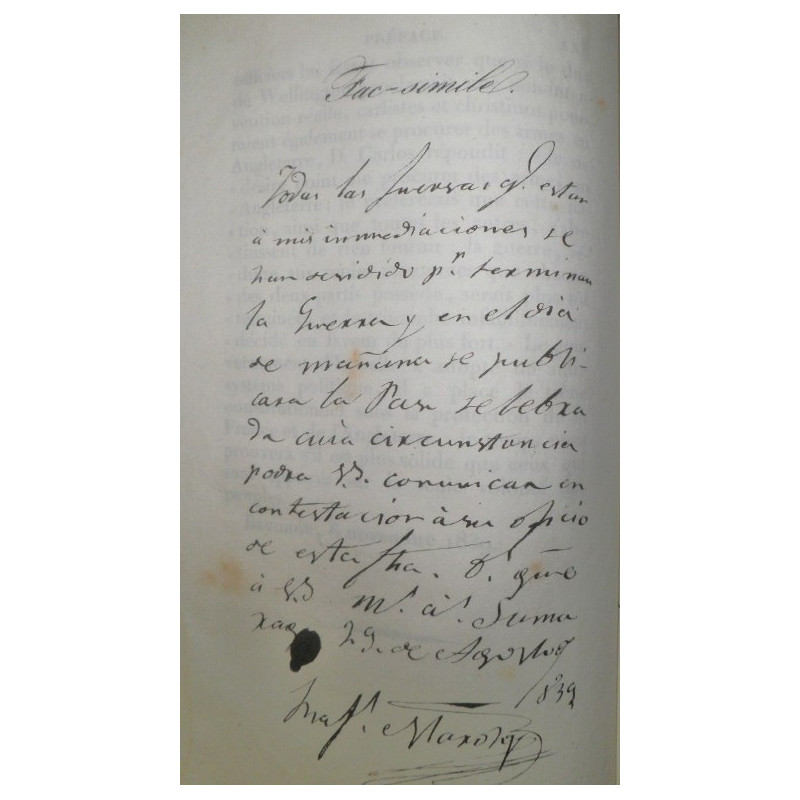 Fac-simile.
Todas las fuersas q.e estan
á mis inmediaciones se
han desidido p.r terminar
la Guerra y en el dia
de mañana se publi-
cara la Paz selebra
da cuia circunstancia
podra V.S. comunicar en
contestacion á su oficio
de esta fha. D. gūe
á V.S. m.s a.s Zuma
xag. 29. de Agosto de
1839
Raf.l Maroto